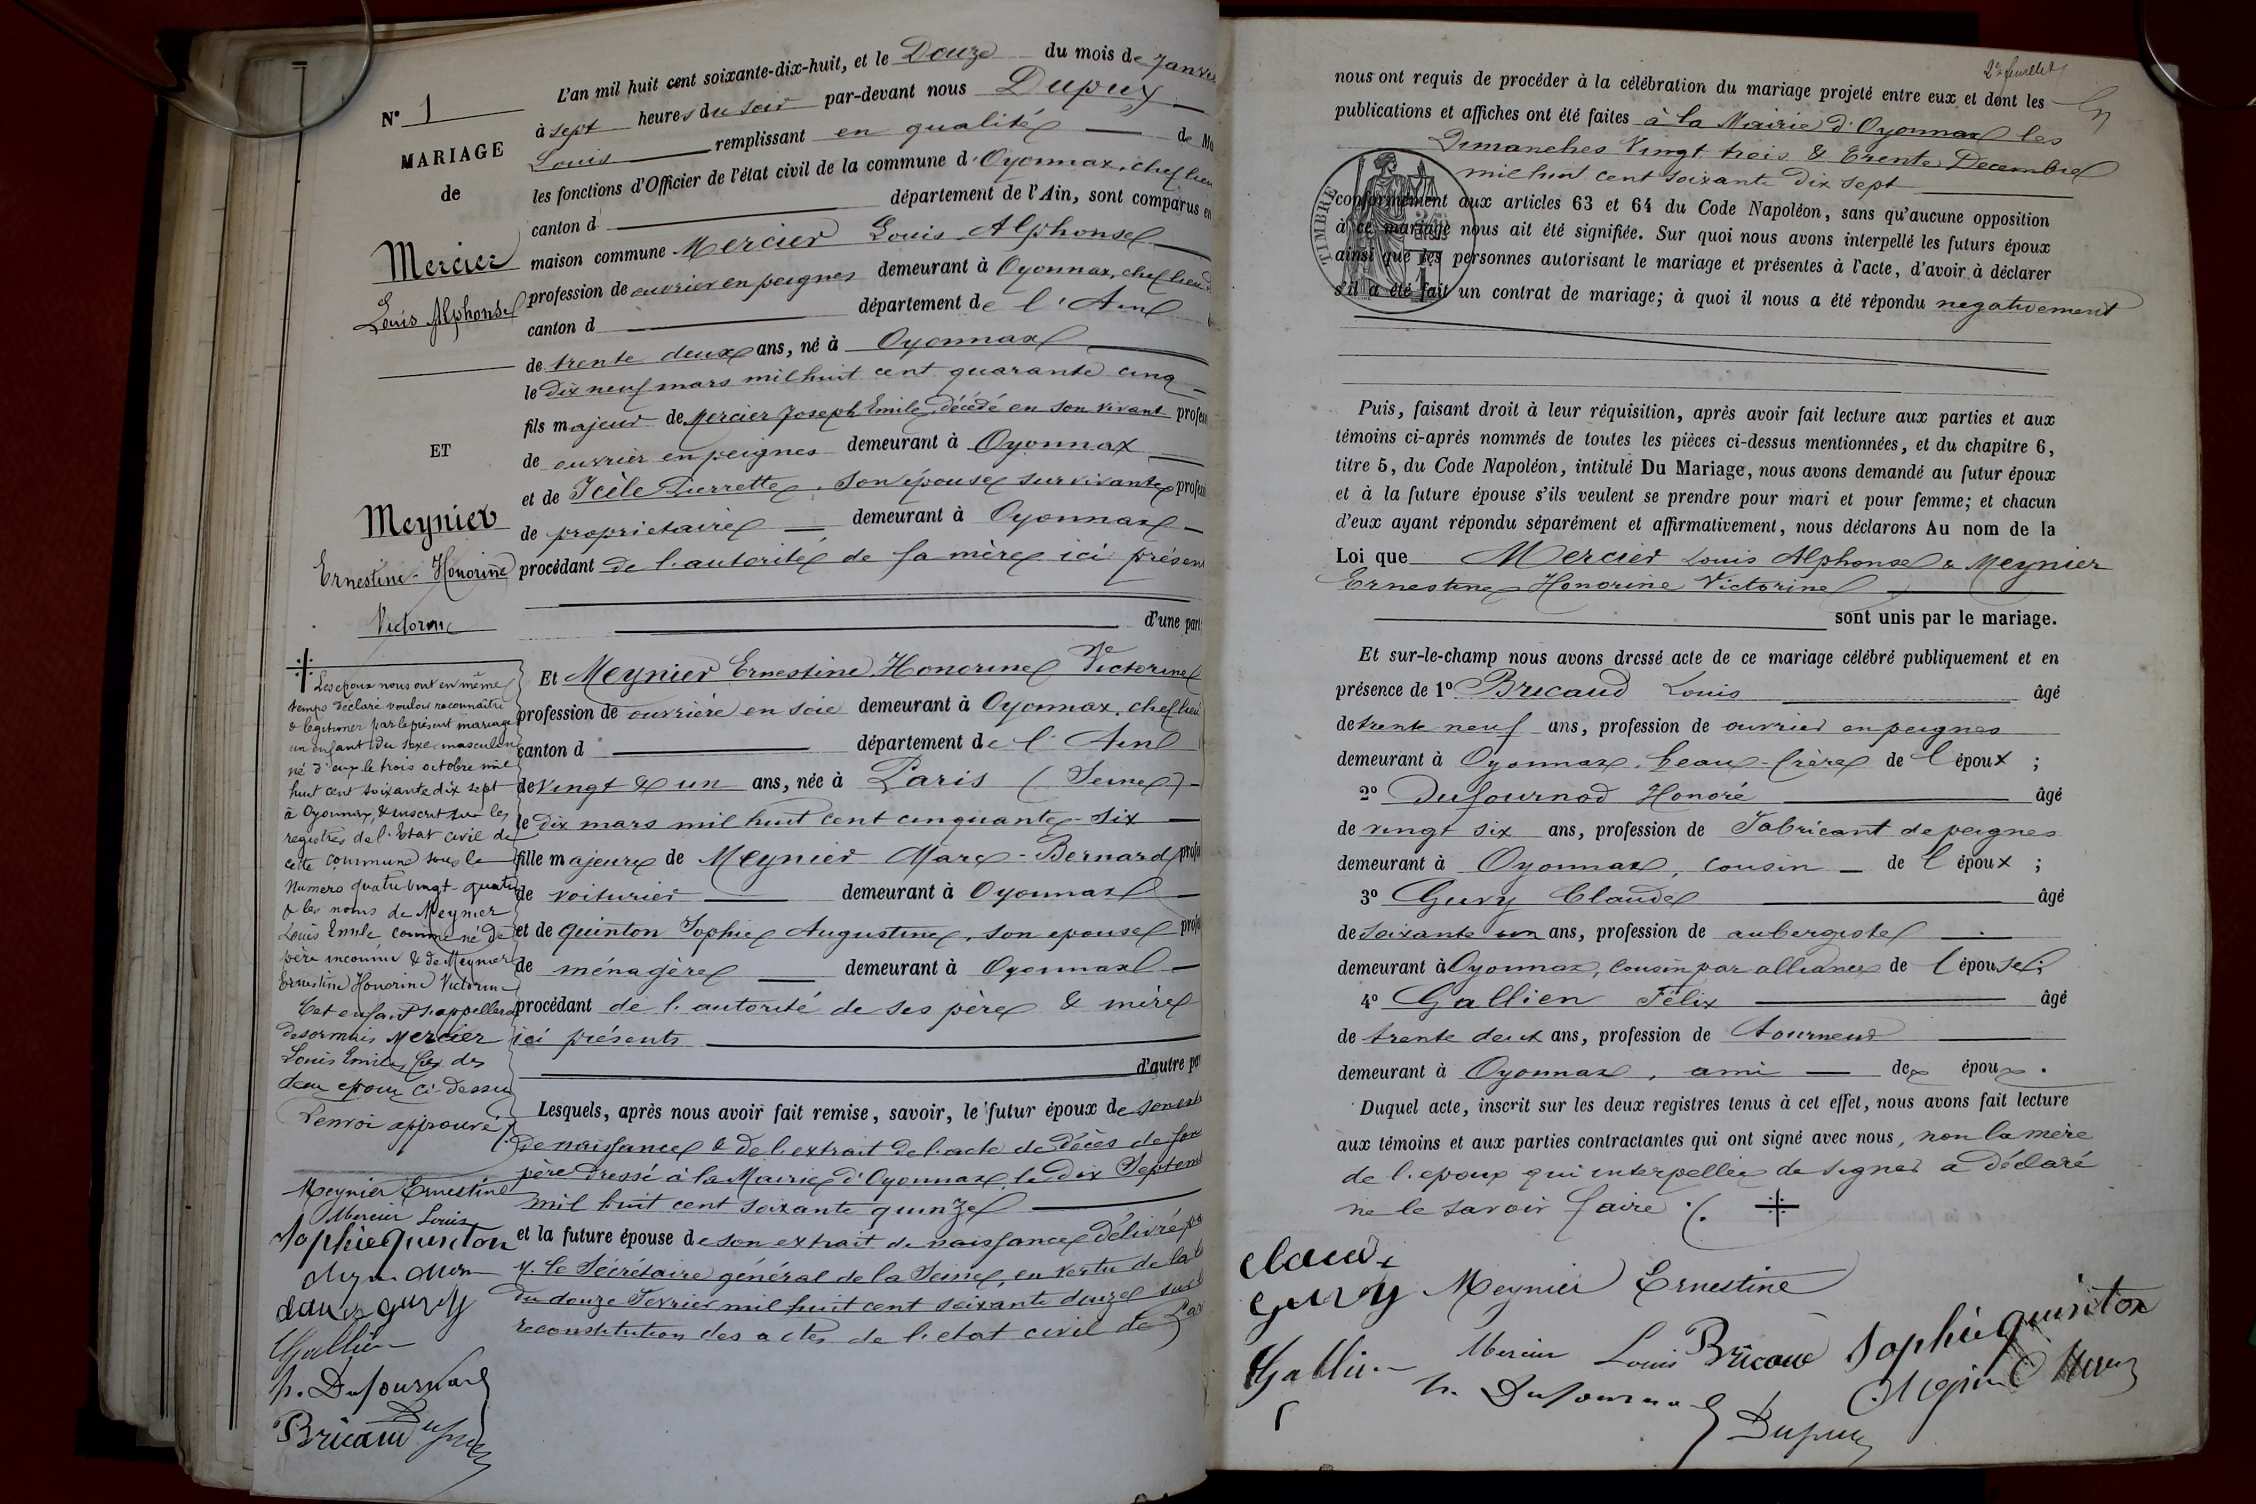 N° 1
MARIAGE
de
Mercier
Louis Alphonse
ET
Meynier
Ernestine-Honorine
Victorine
Les époux nous ont en même
temps déclaré vouloir reconnaître
& légitimer par le présent mariage
un enfant du sexe masculin
né d'eux le trois octobre mil
huit cent soixante dix sept
à Oyonnax, & inscrit sur les
registres de l'Etat civil de
cette commune sous le
Numero quatre vingt-quatre
& les noms de Meynier
Louis Emile comme né de
père inconnu & de Meynier
Ernestine Honorine Victorine
Cet enfant s'appellera
desormais Mercier
Louis Emile fils des
deux epoux ci-dessus
Renvoi approuvé
Meynier Ernestine
Mercier Louis
Sophie quinton
claude guvy
Gallien
h. Dufournod
Bricaud Dupuy
L'an mil huit cent soixante-dix-huit, et le Douze du mois de Janvier
à sept heures du soir par-devant nous Dupuy
Louis remplissant en qualité de Ma
les fonctions d'Officier de l'état civil de la commune d'Oyonnax, chef lieu
canton d département de l'Ain, sont comparus en
maison commune Mercier Louis Alphonse
profession de ouvrier en peignes demeurant à Oyonnax, chef lieu d
canton d département de l'Ain
de trente deux ans, né à Oyonnax
le dix neuf mars mil huit cent quarante cinq
fils majeur de Mercier Joseph Emile, décédé en son vivant profes
de ouvrier en peignes demeurant à Oyonnax
et de Icèle Pierrette, son épouse survivante profess
de propriétaire demeurant à Oyonnax
procédant de l'autorité de sa mère ici présen
d'une part
Et Meynier Ernestine Honorine Victorine
profession de ouvrière en soie demeurant à Oyonnax, chef lieu
canton d département de l'Ain
de vingt & un ans, née à Paris (Seine)
le dix mars mil huit cent cinquante-six
fille majeure de Meynier Marc-Bernard profes
de voiturier demeurant à Oyonnax
et de Quinton Sophie Augustine, son epouse profes
de ménagère demeurant à Oyonnax
procédant de l'autorité de ses père & mère
ici présents
d'autre par
Lesquels, après nous avoir fait remise, savoir, le futur époux de son ext
de naissance & de l'extrait de l'acte de décès de son
père dressé à la Mairie d'Oyonnax le dix Septem
mil huit cent soixante quinze
et la future épouse de son extrait de naissance délivré pa
M. le Secrétaire général de la Seine, en vertu de la
du douze Fevrier mil huit cent soixante douze sur
reconstitution des actes de l'etat civil de Par
2e feuillet
nous ont requis de procéder à la célébration du mariage projeté entre eux et dont les
publications et affiches ont été faites à la Mairie d'Oyonnax les
Dimanches Vingt trois & trente Decembre
mil huit cent soixante dix sept
TIMBRE
conformément aux articles 63 et 64 du Code Napoléon, sans qu'aucune opposition
à ce mariage nous ait été signifiée. Sur quoi nous avons interpellé les futurs époux
ainsi que les personnes autorisant le mariage et présentes à l'acte, d'avoir à déclarer
s'il a été fait un contrat de mariage; à quoi il nous a été répondu negativement
Puis, faisant droit à leur réquisition, après avoir fait lecture aux parties et aux
témoins ci-après nommés de toutes les pièces ci-dessus mentionnées, et du chapitre 6,
titre 5, du Code Napoléon, intitulé Du Mariage, nous avons demandé au futur époux
et à la future épouse s'ils veulent se prendre pour mari et pour femme; et chacun
d'eux ayant répondu séparément et affirmativement, nous déclarons Au nom de la
Loi que Mercier Louis Alphonse & Meynier
Ernestine Honorine Victorine
sont unis par le mariage.
Et sur-le-champ nous avons dressé acte de ce mariage célébré publiquement et en
présence de 1° Bricaud Louis âgé
de trente neuf ans, profession de ouvrier en peignes
demeurant à Oyonnax, beau-frère de l'époux ;
2° Dufournod Honoré âgé
de vingt six ans, profession de Fabricant de peignes
demeurant à Oyonnax, cousin de l'époux ;
3° Guvy Claude âgé
de soixante un ans, profession de aubergiste
demeurant à Oyonnax, cousin par alliance de l'épouse ;
4° Gallien Félix âgé
de trente deux ans, profession de tourneur
demeurant à Oyonnax, ami des époux.
Duquel acte, inscrit sur les deux registres tenus à cet effet, nous avons fait lecture
aux témoins et aux parties contractantes qui ont signé avec nous, non la mère
de l'epoux qui interpellée de signer a déclaré
ne le savoir faire
claude
guvy Meynier Ernestine
Gallien Mercier Louis Bricaud Sophie quinton
h. Dufournod
Dupuy